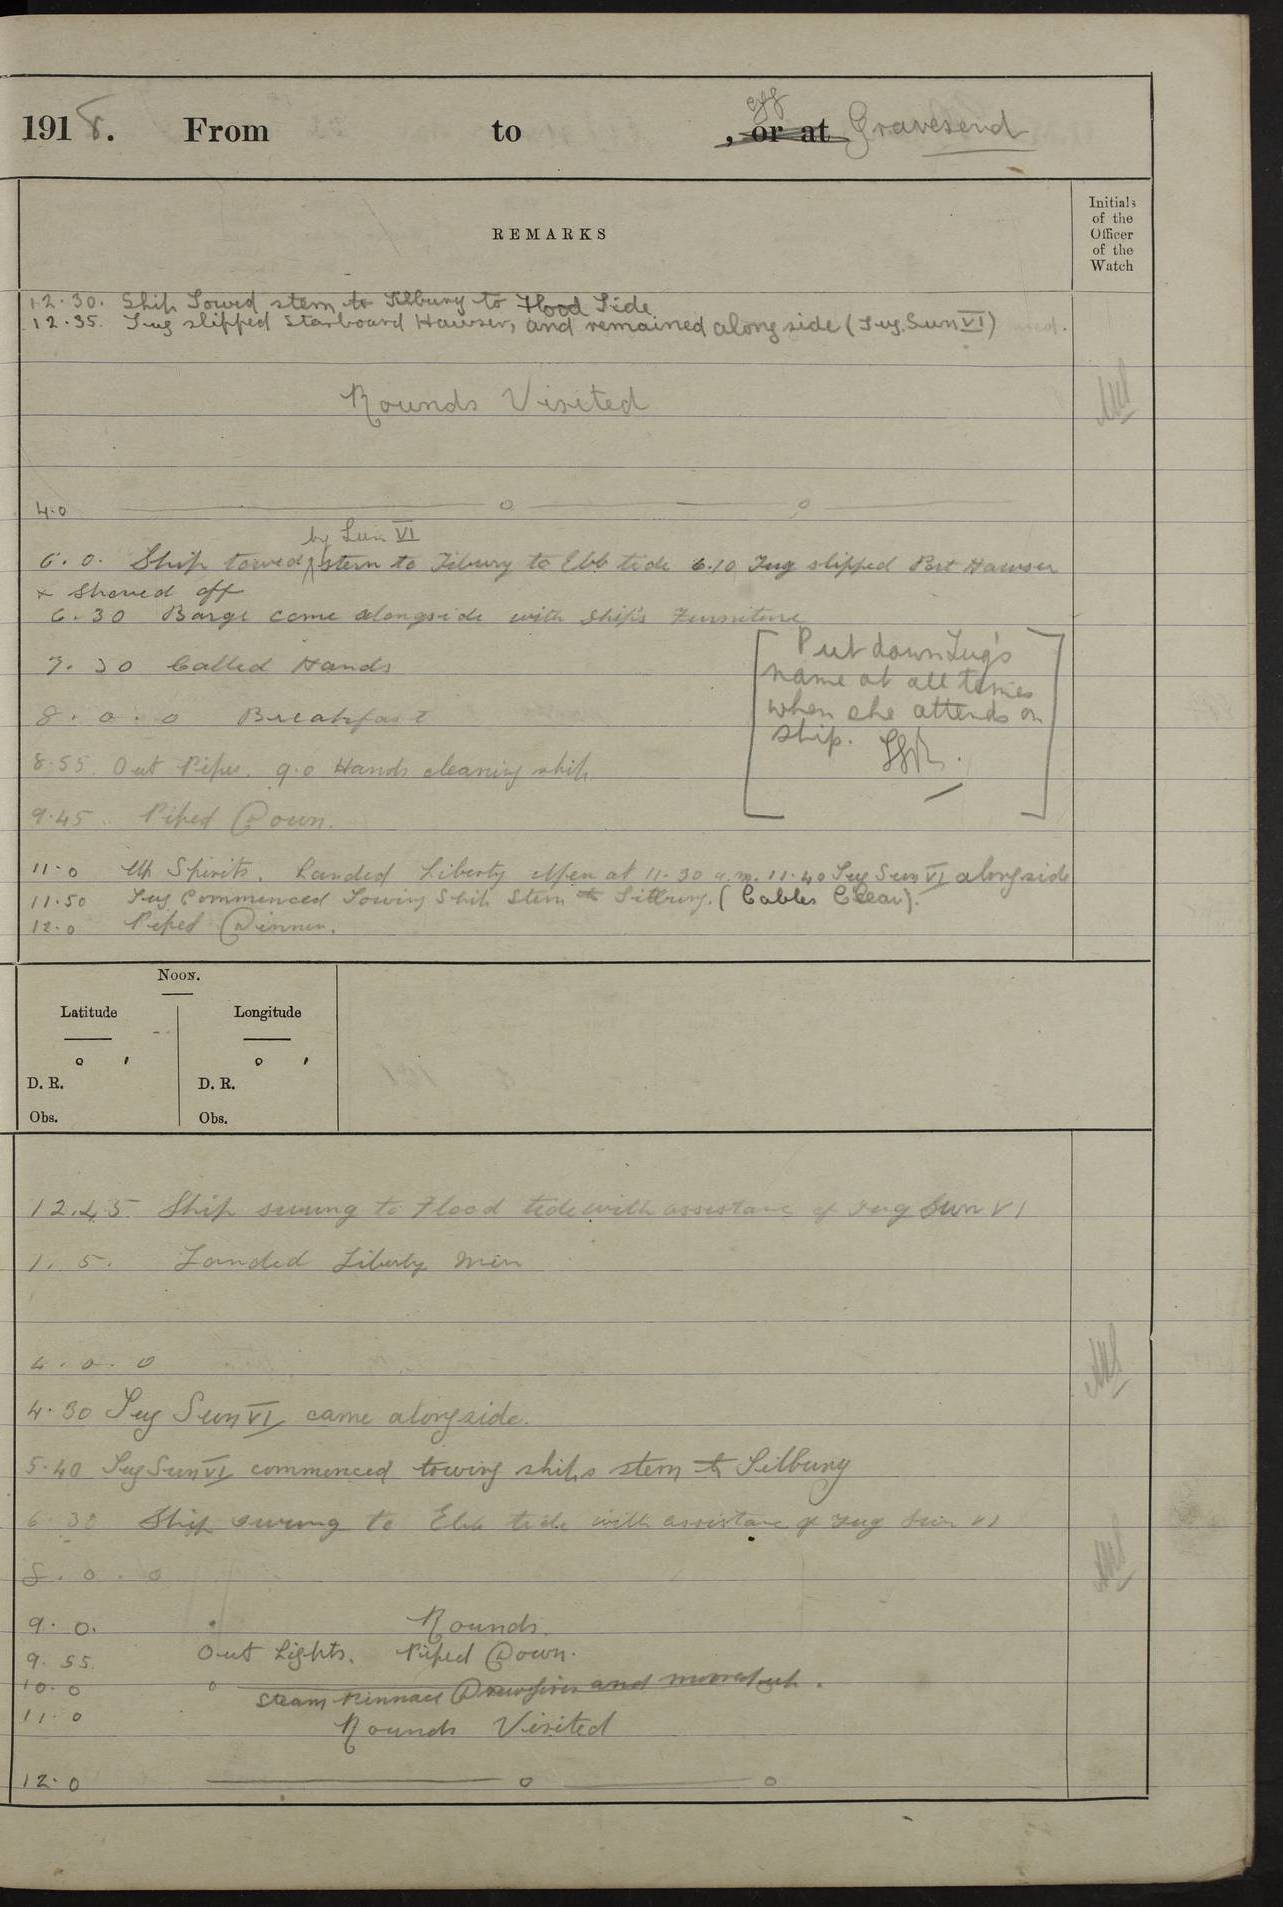 1918. From to , or at off Gravesend
REMARKS
Initials
of the
Officer
of the
Watch
12.30. Ship Towed stern to Tilbury to Flood Tide
12.35. Tug slipped Starboard Hawser, and remained alongside (Tug Sun VI)
Rounds Visited
4.0
by Sun VI
6.0. Ship towed stern to Tibury to Ebb tide 6.10 Tug slipped Port Hawser
& Shoved off
6.30 Barge came alongside with Ship's Furniture
7.30 Called Hands
8.0.0 Breakfast
[Put down Tug's
name at all times
when she attends on
ship.]
8.55. Out Pipes. 9.0 Hands cleaning ship
9.45 Piped Down.
11.0 Up Spirits. Landed Liberty Men at 11.30 a.m. 11.40 Tug Sun VI alongside
11.50 Tug Commenced Towing Ship Stern to Tilbury. (Cables Clear).
12.0 Piped Dinner.
Noon.
Latitude Longitude
° ′ ° ′
D. R. D. R.
Obs. Obs.
12.45 Ship swung to Flood tide with assistance of Tug Sun VI
1.5. Landed Liberty Men
4.0.0
4.30 Tug Sun VI came alongside.
5.40 Tug Sun VI commenced towing ships stern to Tilbury
6.30 Ship swung to Ebb tide with assistance of Tug Sun VI
8.0.0
9.0. Rounds.
9.55 Out Lights. Piped Down.
10.0 Steam Pinnace Drew fires and moored up.
11.0 Rounds Visited
12.0